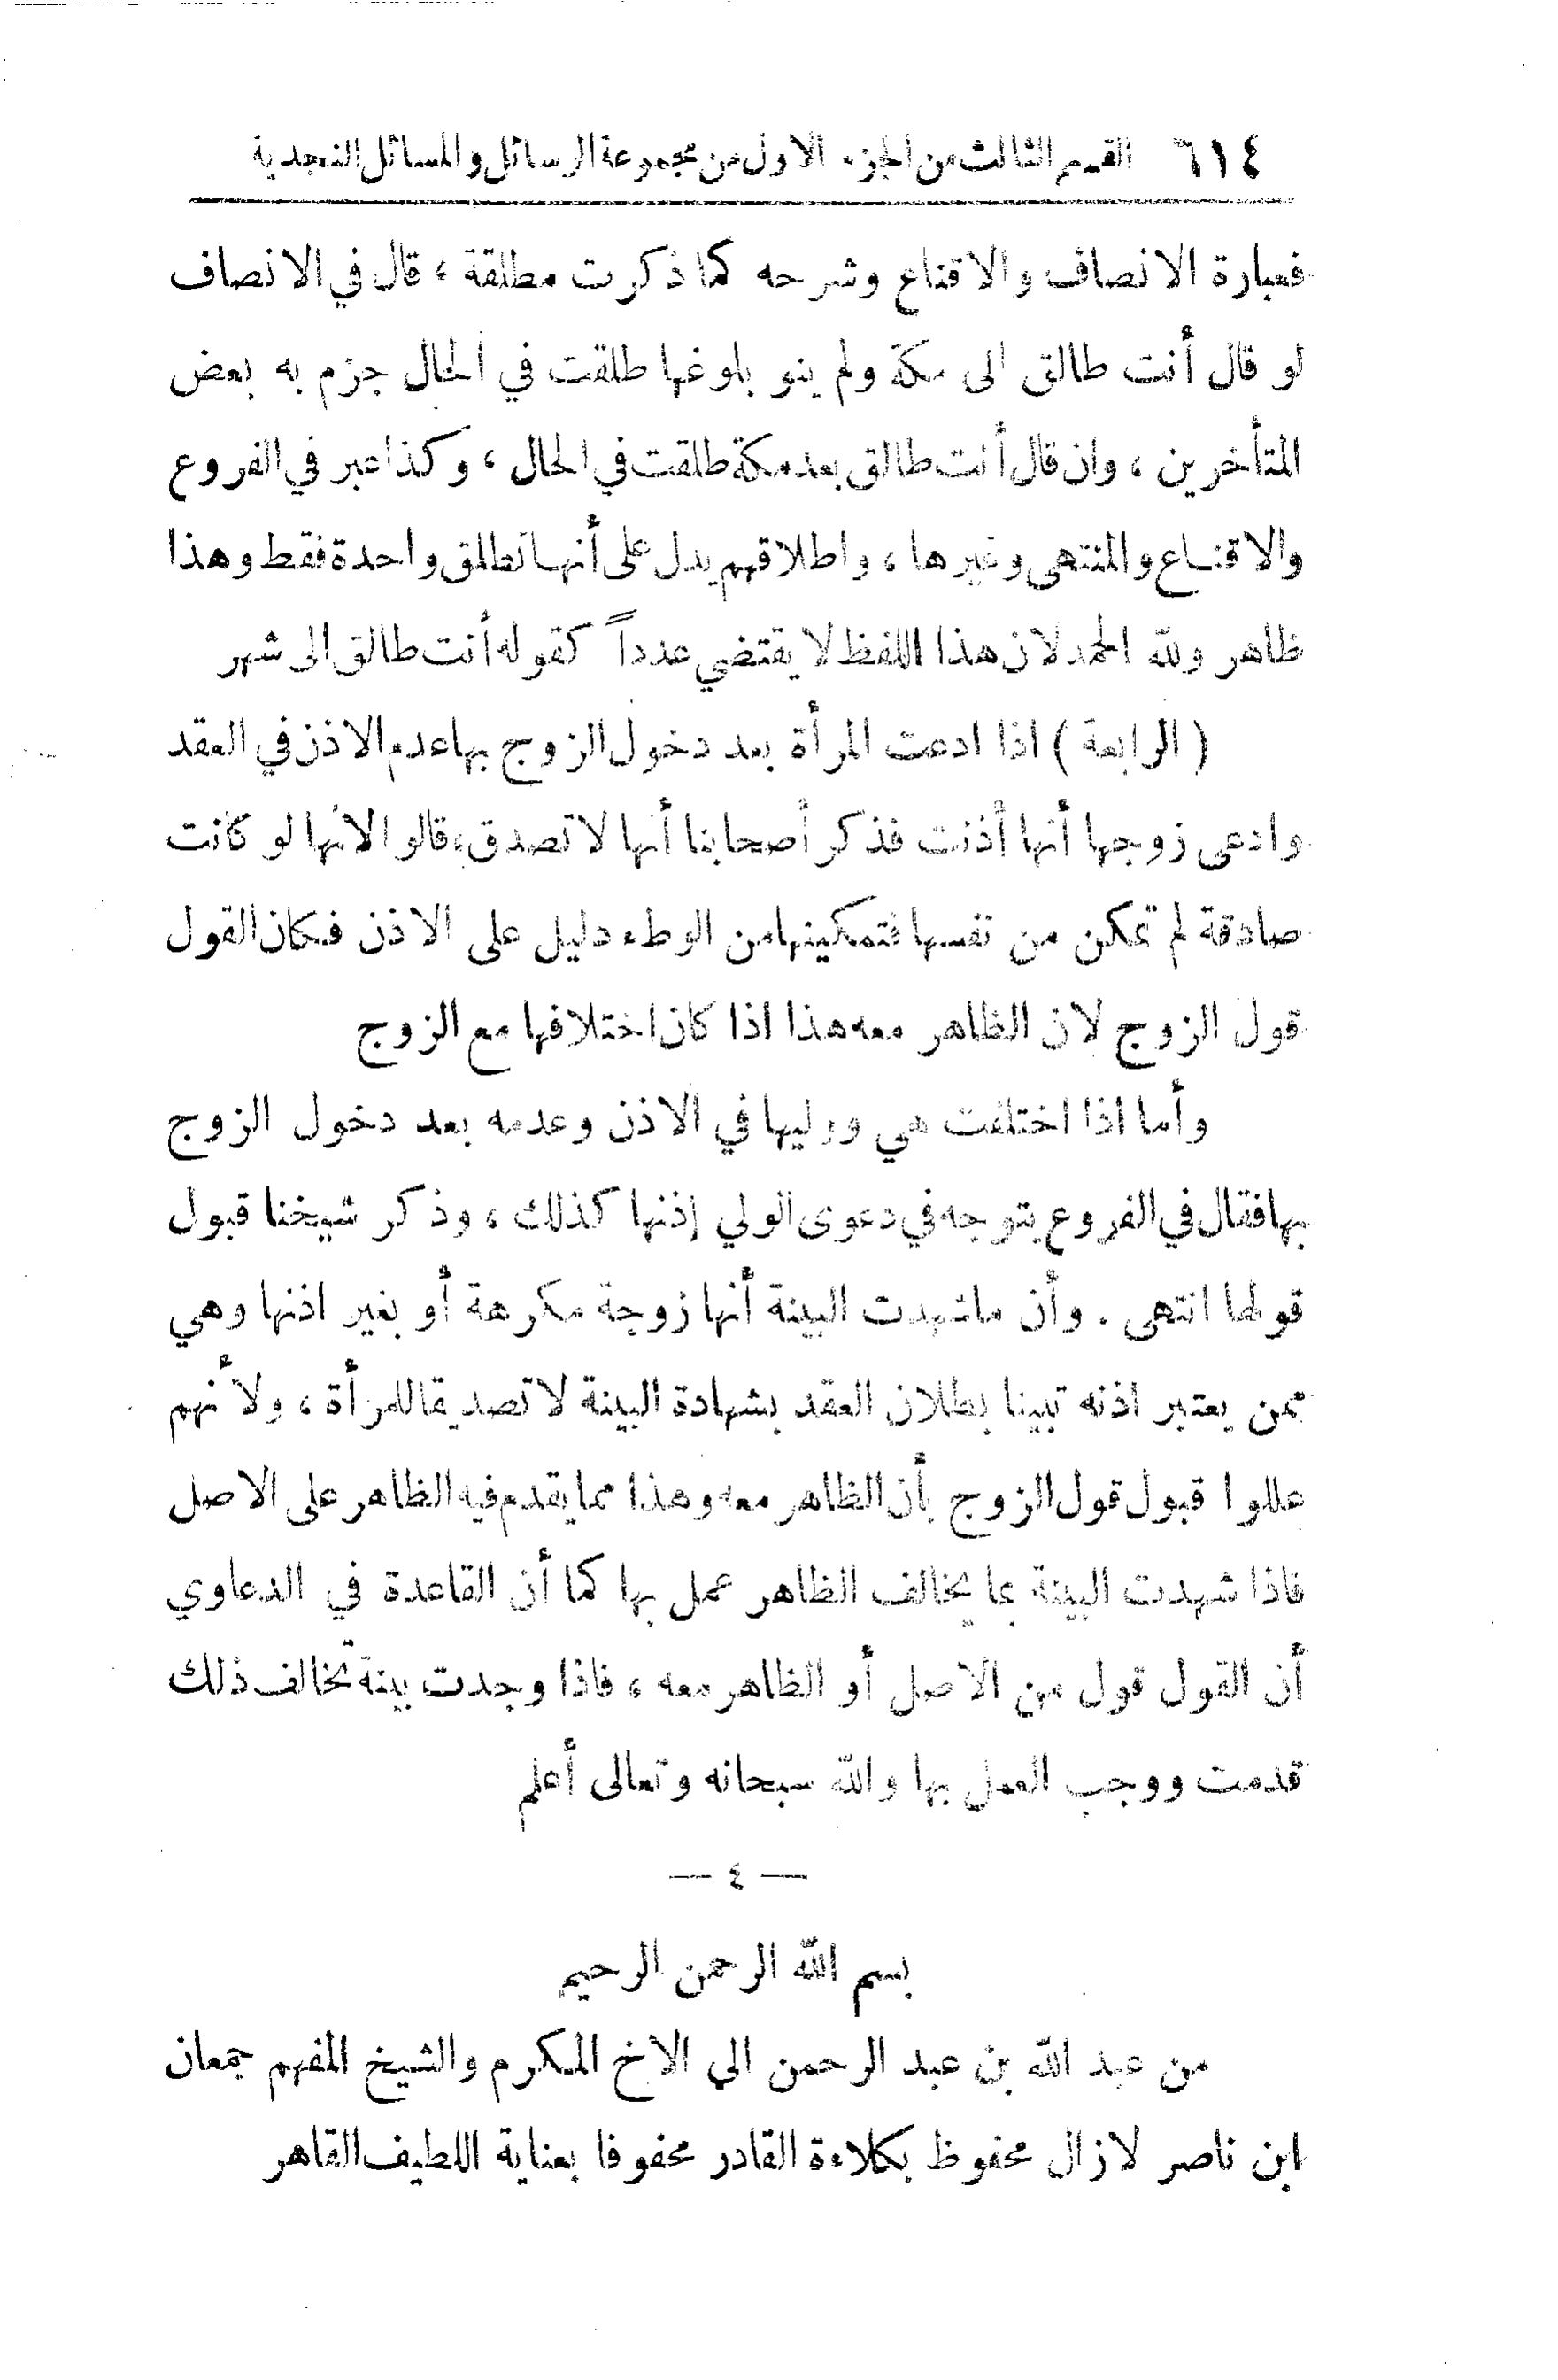 ٦١٤ القسم الثالث من الجزء الاول من مجموعة الرسائل والمسائل النجدية
فعبارة الانصاف والاقناع وشرحه كما ذكرت مطلقة ، قال في الانصاف
لو قال أنت طالق الى مكة ولم ينو بلوغها طلقت في الحال جزم به بعض
المتأخرين ، وان قال أنت طالق بعد مكة طلقت في الحال ، وكذا عبر في الفروع
والاقناع والمنتهى وغيرها ، واطلاقهم يدل على أنها تطلق واحدة فقط وهذا
ظاهر ولله الحمد لان هذا اللفظ لا يقتضي عدداً كقوله أنت طالق الى شهر
( الرابعة ) اذا ادعت المرأة بعد دخول الزوج بها عدم الاذن في العقد
وادعى زوجها أنها أذنت فذكر أصحابنا أنها لا تصدق، قالوا لانها لو كانت
صادقة لم تمكن من نفسها فتمكينها من الوطء دليل على الاذن فكان القول
قول الزوج لان الظاهر معه هذا اذا كان اختلافها مع الزوج
وأما اذا اختلفت هي ووليها في الاذن وعدمه بعد دخول الزوج
بها فقال في الفروع يتوجه في دعوى الولي إذنها كذلك ، وذكر شيخنا قبول
قولها انتهى . وأن ما شهدت البينة أنها زوجة مكرهة أو بغير اذنها وهي
ممن يعتبر اذنه تبينا بطلان العقد بشهادة البينة لا تصديقا للمرأة ، ولأنهم
عللوا قبول قول الزوج بأن الظاهر معه وهذا مما يقدم فيه الظاهر على الاصل
فاذا شهدت البينة بما يخالف الظاهر عمل بها كما أن القاعدة في الدعاوي
أن القول قول من الاصل أو الظاهر معه ، فاذا وجدت بينة تخالف ذلك
قدمت ووجب العمل بها والله سبحانه وتعالى أعلم
— ٤ —
بسم الله الرحمن الرحيم
من عبد الله بن عبد الرحمن الى الاخ المكرم والشيخ المفهم جمعان
ابن ناصر لازال محفوظ بكلاءة القادر محفوفا بعناية اللطيف القاهر